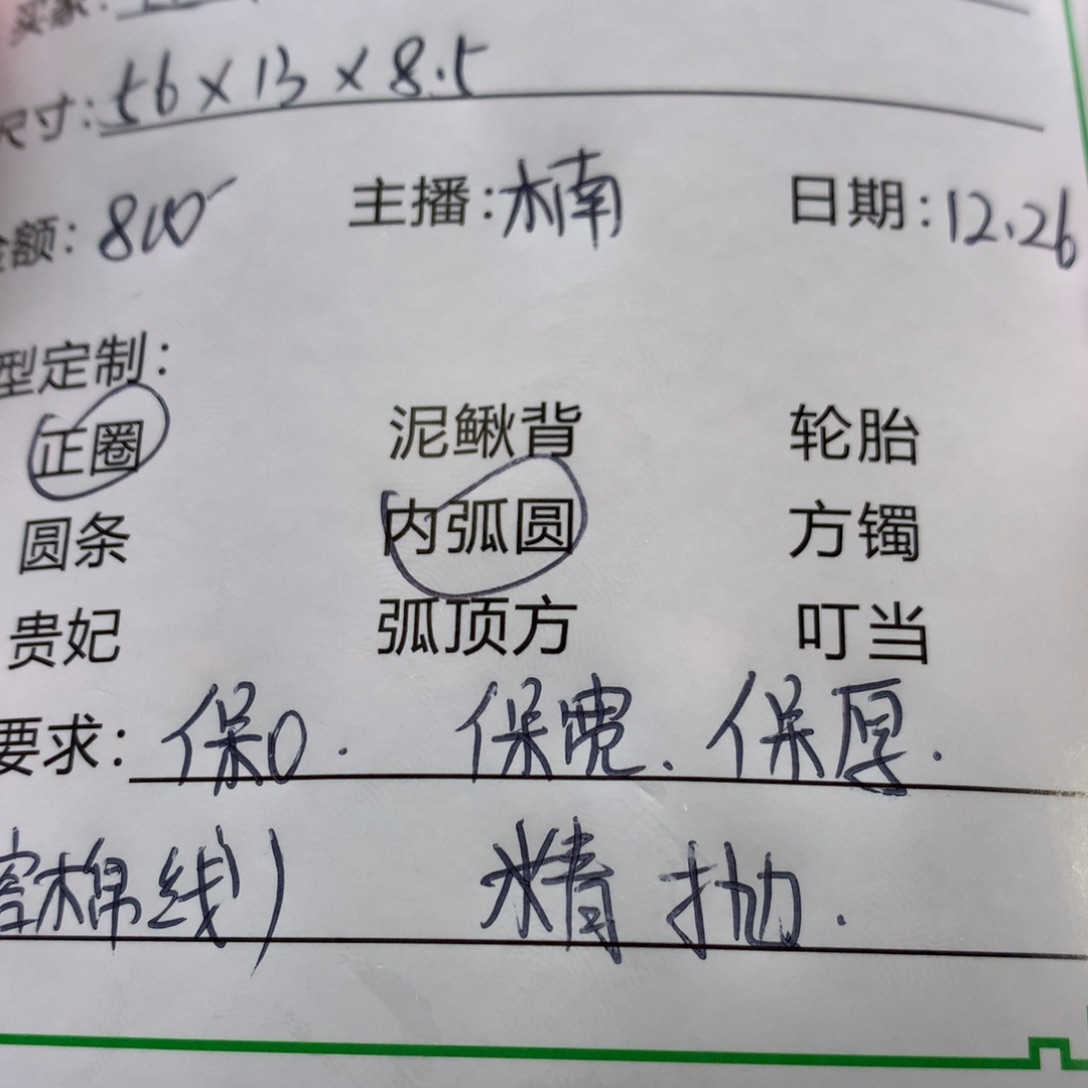 买家:
尺寸: 56×13×8.5
金额: 800 主播: 楠 日期: 12.26
型定制:
正圈 泥鳅背 轮胎
圆条 内弧圆 方镯
贵妃 弧顶方 叮当
要求: 保0. 保宽、保厚.
棉线) 精抛.